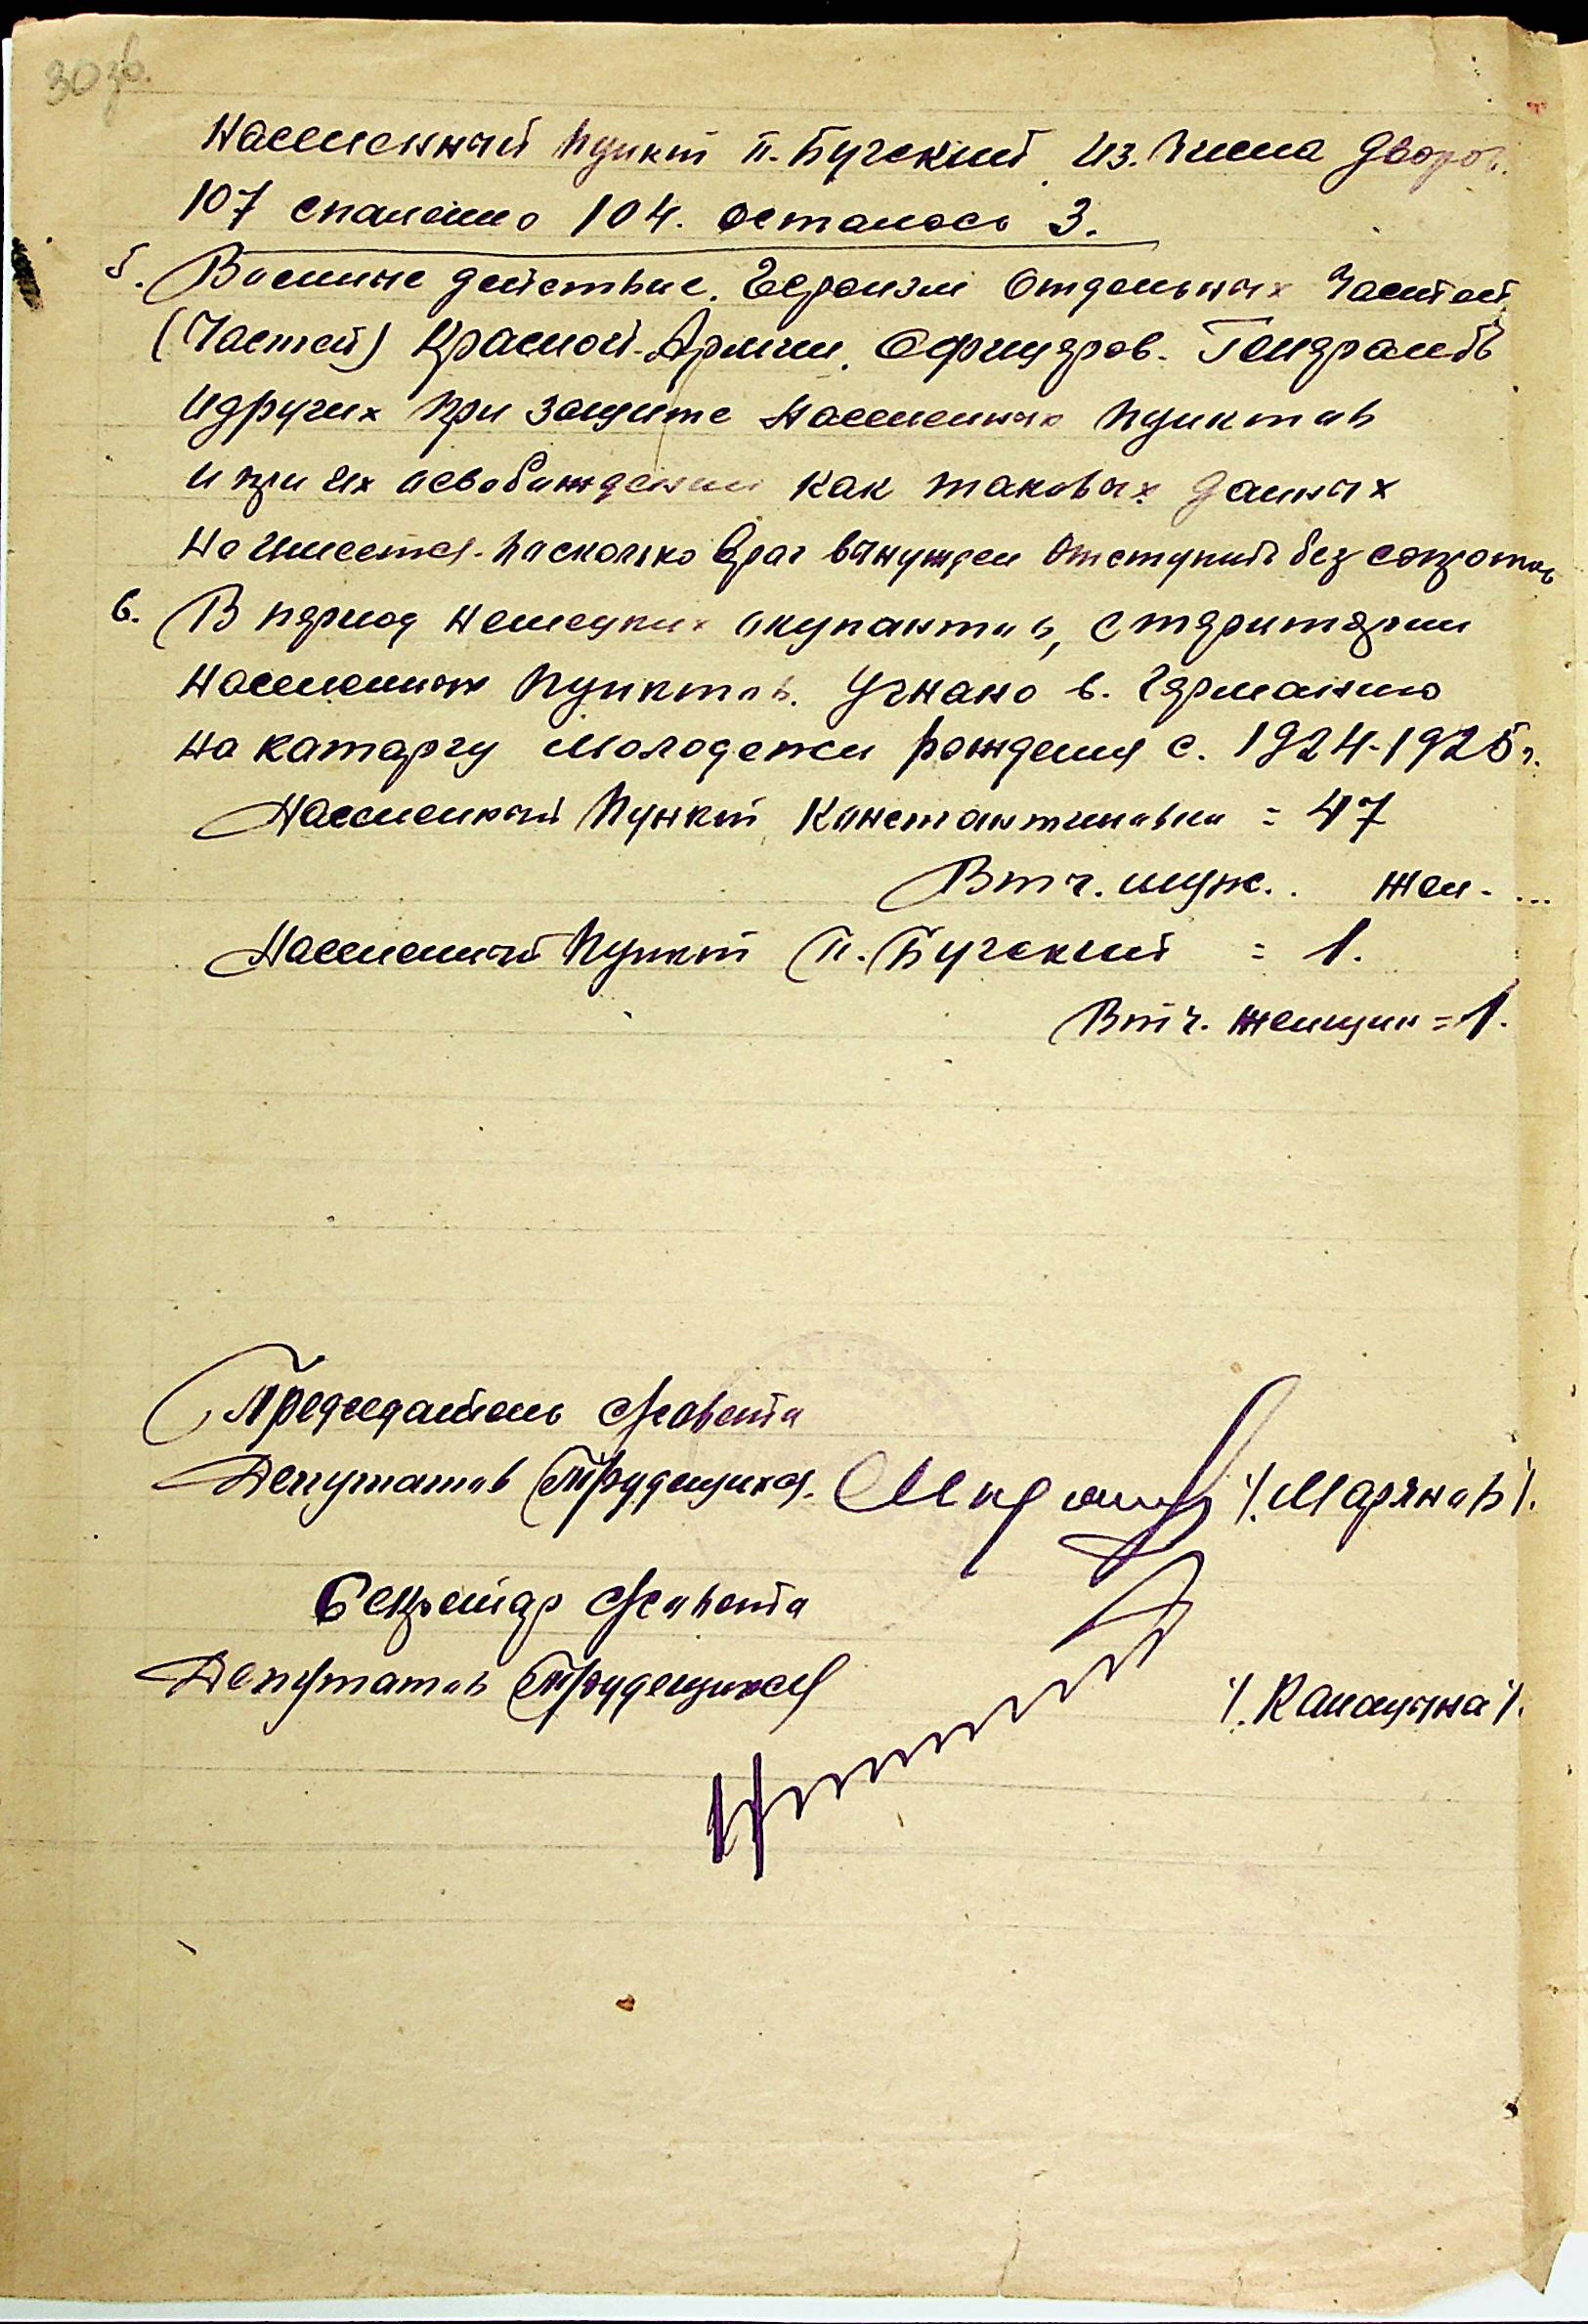 30 об.
Населенный пункт п. Бугский из. числа дворов.
107 спаленно 104. осталось 3.
5. Военные действие. Героизм отдельных частей
(Частей) Красной Армии. Офицеров. Генералов
и других при защите населенных пунктов
и при их освобождении как таковых данных
не имеется. Насколько враг вынужден отступить без сопротив
6. В период немецких окупантов, с территории
населенных пунктов. Угнано в. Германию
на каторгу молодежи рождения с. 1924-1925 г.
Населенный пункт Константиновка = 47
В т ч. муж. . жен. ...
Населенный пункт п. Бугский = 1.
В т ч. женщин = 1.
Председатель с/совета
Депутатов трудещихся. /. Марянов /.
Секретар с/совета
Депутатов трудещихся